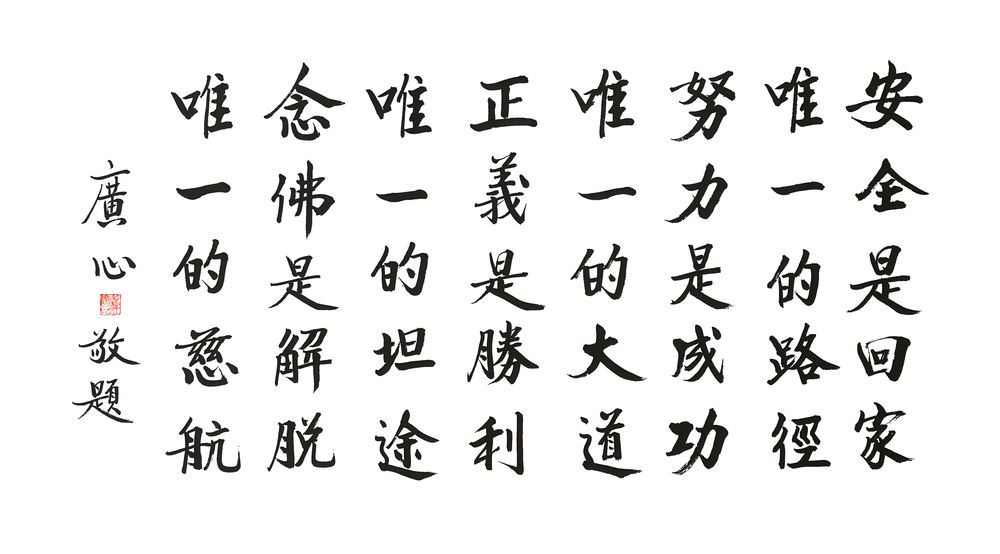 安全是回家
唯一的路徑
努力是成功
唯一的大道
正義是勝利
唯一的坦途
念佛是解脱
唯一的慈航
廣心敬題